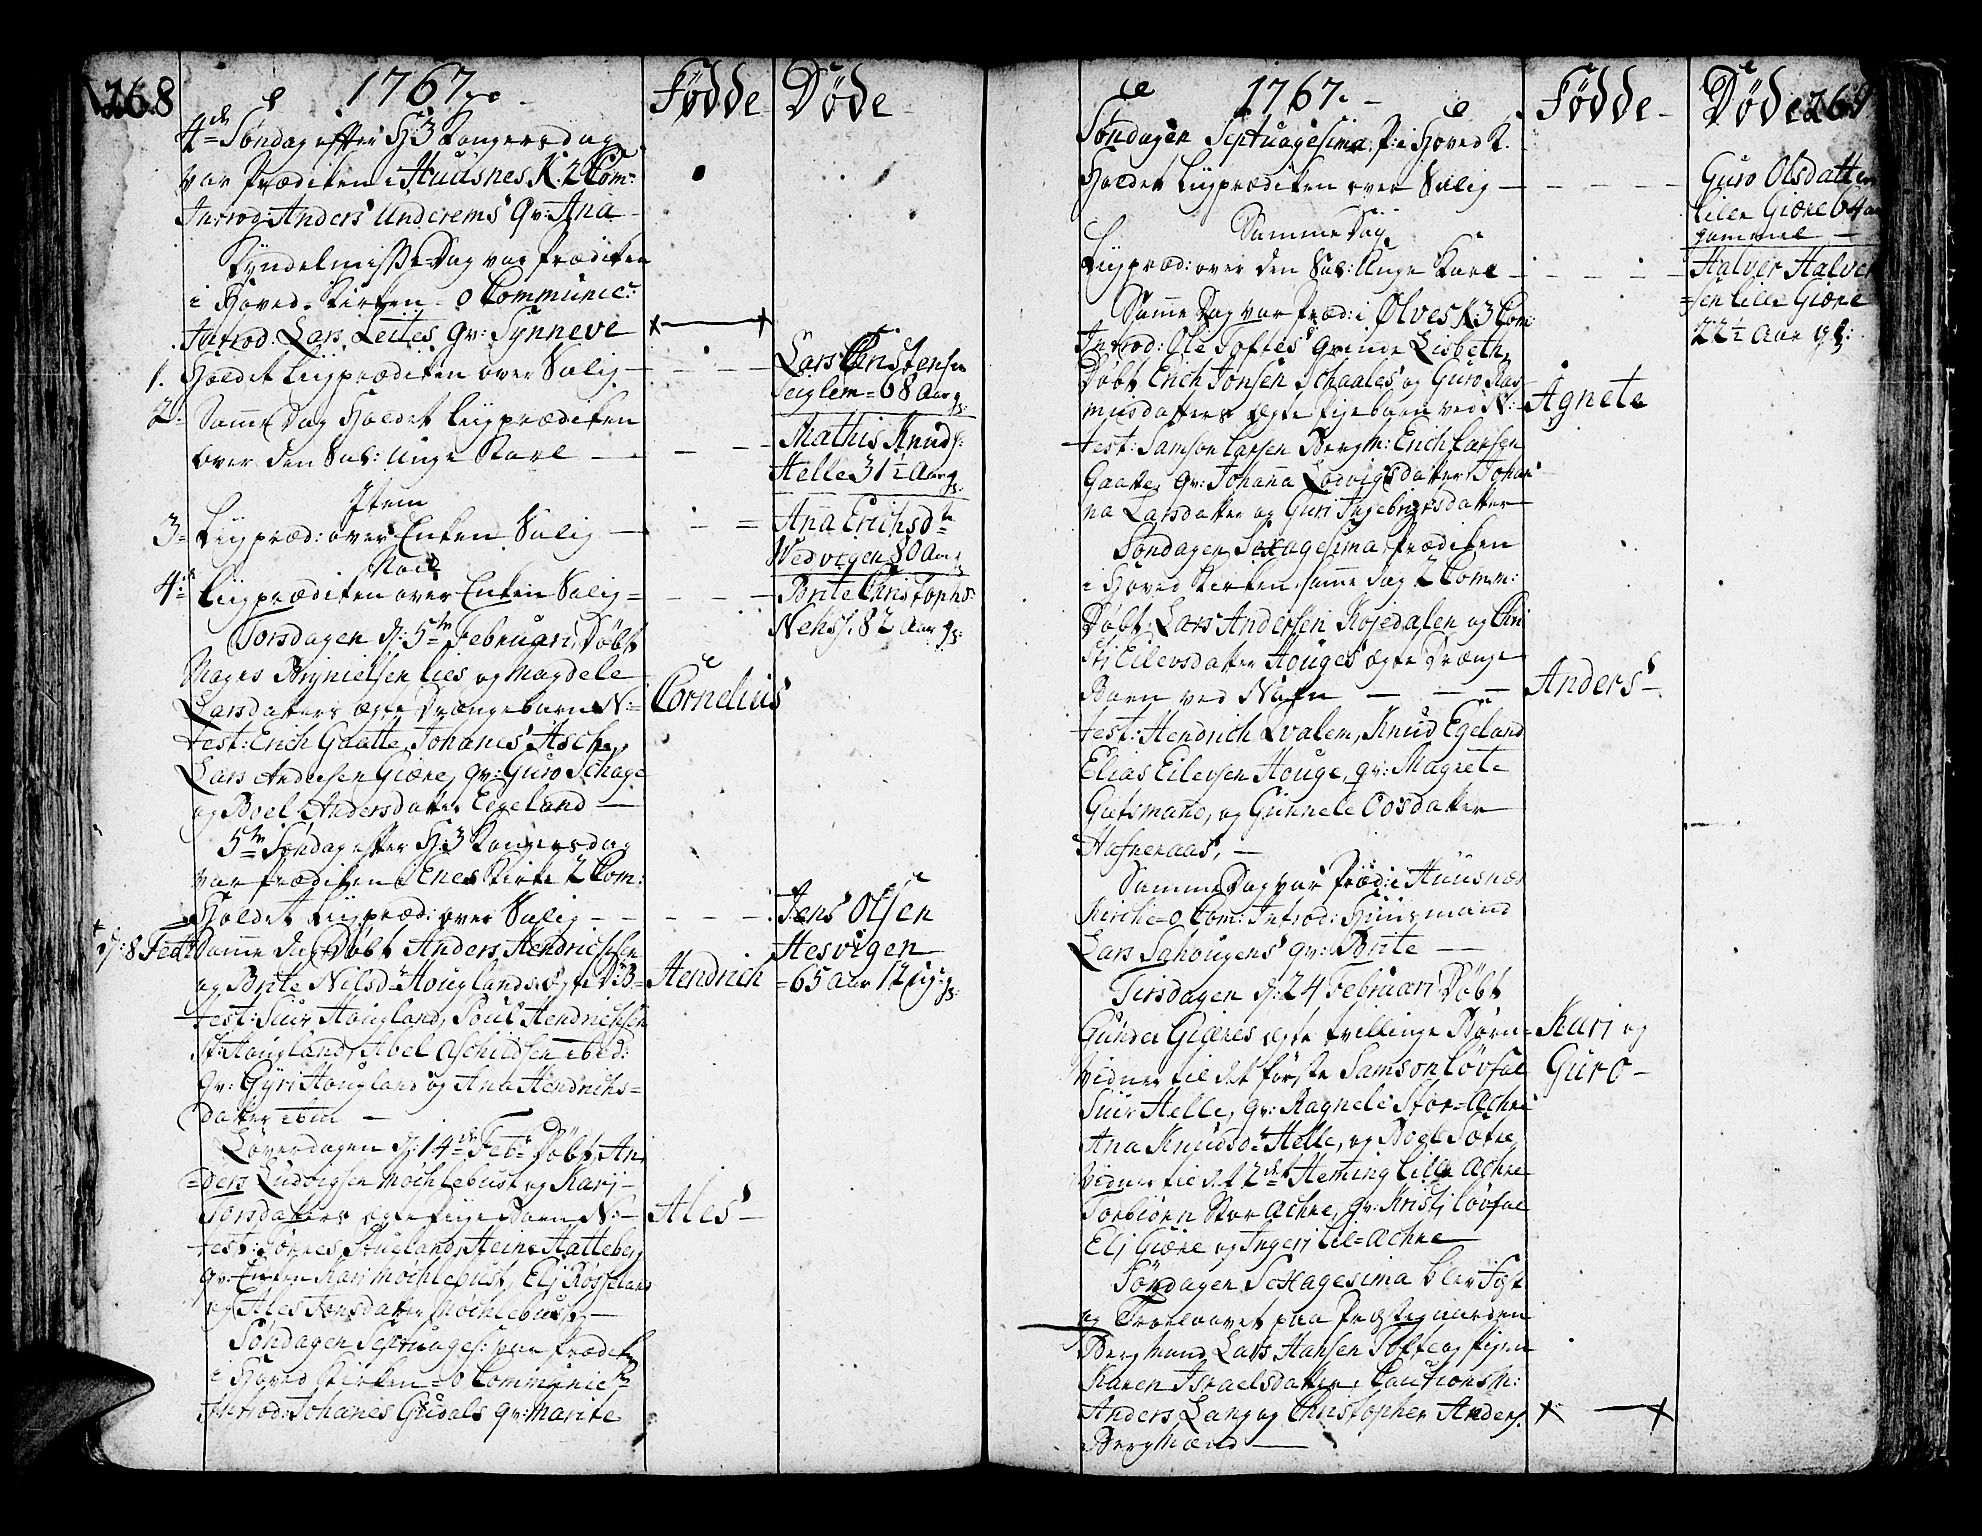 268
1767.
Fødde
Døde
4de Søndag efter H: 3 Kongersdag
var Prædiken i Huusnes K. 2 Com:
Introd: Anders Underems Qv: Ana
Kyndelmisse-Dag var Prædiken
i Hoved-Kirken - 0 Communic:
Introd. Lars Leites Qv: Synneve
1. Holdet Liigprædiken over Salig
Lars Christensen
Seiglem = 68 Aar gl:
2. Samme Dag Holdet Liigprædiken
over den Sal: Unge Karl
Mathis Knuds:
Helle 31½ Aar gl:
Item
3 = Liigpræd: over Enken Salig
Ana Erichsdtr
Wedvigen 80 Aar gl
Noch
4. Liigprædiken over Enken Salig =
Brite Christophs:
Nehs. 82 Aar gl:
Torsdagen d: 5te Februari, Døbt
Mag­nes Brynielsen Lies og Magdele
Larsdatters ægte Drængebarn N:
Cornelius
Test: Erich Gaatte, Johanes Asche,
Lars Andersen Giære, qv: Guro Schage
og Boel Andersdatter Eegeland
5te Søndag efter H: 3 Kongersdag
var Prædiken i Enes Kirke 2 Com:
Holdet Liigpræd: over Salig
Jens Olsen
Hesvigen
= 65 Aar 12 gl:
d: 8 Feb
Samme dag Døbt Anders Hendrichsen
og Brite Nilsd Houglands ægte D: B
Hendrich
Test: Siur Hougland, Poul Hendrichsen
St: Hougland, Abel Aschildsen ibid:
Qv: Gyri Hougland og Ana Hendrichs=
datter ibm
Løverdagen d: 14de Feb: Døbt An
=ders Ludvigsen Møchlebust og Karj
Torsdatters ægte Pige Barn N:
Ales
Test: Hougland, Heine Hatteberg
qv: Enken Kari Møchlebust, Elj Røsseland
og Ales Jonsdatter Møchlebust
Søndagen Septuages: var Prædik
i Hoved Kirken = 0 Communic
Introd: Johanes Gudals qv: Marite
1767.
Fødde
Døde
269
Søndagen Septuagesima P: i Hoved K.
Holdet Liigprædiken over Salig
Guro Olsdatter
Lille Giære 64 aar
gammel
Samme Dag
Liigpræd: over den Sal: Unge Karl
Halver Halver
=sen Lille Giære
22½ Aar gl:
Samme Dag var Præd: i Ølves K: 3 Com:
Introd: Ole Toftes Qvinde Lisbeth,
Døbt Erich Jonsen Schaales og Guro Ras
musdatters ægte Pigebarn ved N:
Agnete
Test: Samson Larsen Bergm: Erich Larsen
Gaatte, qv: Johanna Lodvigsdatter, Johan
na Larsdatter og Guri Ingebrigtsdatter
Søndagen Sexagesima Prædiken
i Hoved Kirken samme dag 2 Comm:
Døbt Lars Andersen Kojedalen og Chri
stj Eilevsdatter Houges ægte Drænge
Barn ved Nafn
Anders
Test: Hendrich Qvalem, Knud Egeland
Elias Eilevsen Houge, qv: Magrete
Giætsmand, og Gunnele Oosdatter
Hafneraas,
Samme Dag var Præd: i Huusnæs
Kirche = 0 Com: Introd: Huusmand
Lars Sahougens qv: Brite
Tirsdagen d: 24 Februari Døbt
Gunder Giæres ægte tvillinge Børn
Kari og
Guro
Vidner til det første Samson Løvfal
Siur Helle, qv: Ragnele Stor=Achre
Ana Knudsd Helle, og Boel Tofte,
Vidner til det 2de Heming Lille Achre
Torbiørn Stor Achre, qv: Kristj Løvfal
Elj Giære og Ingeri Lil=Achre
Søndagen Sexagesima blev Fæst
og Troelovet paa Præstegaarden
Bergmand Lars Hansen Tofte og Pigen
Karen Israelsdatter, Cautionsm:
Anders Lang og Christopher Anders.
Bergmænd